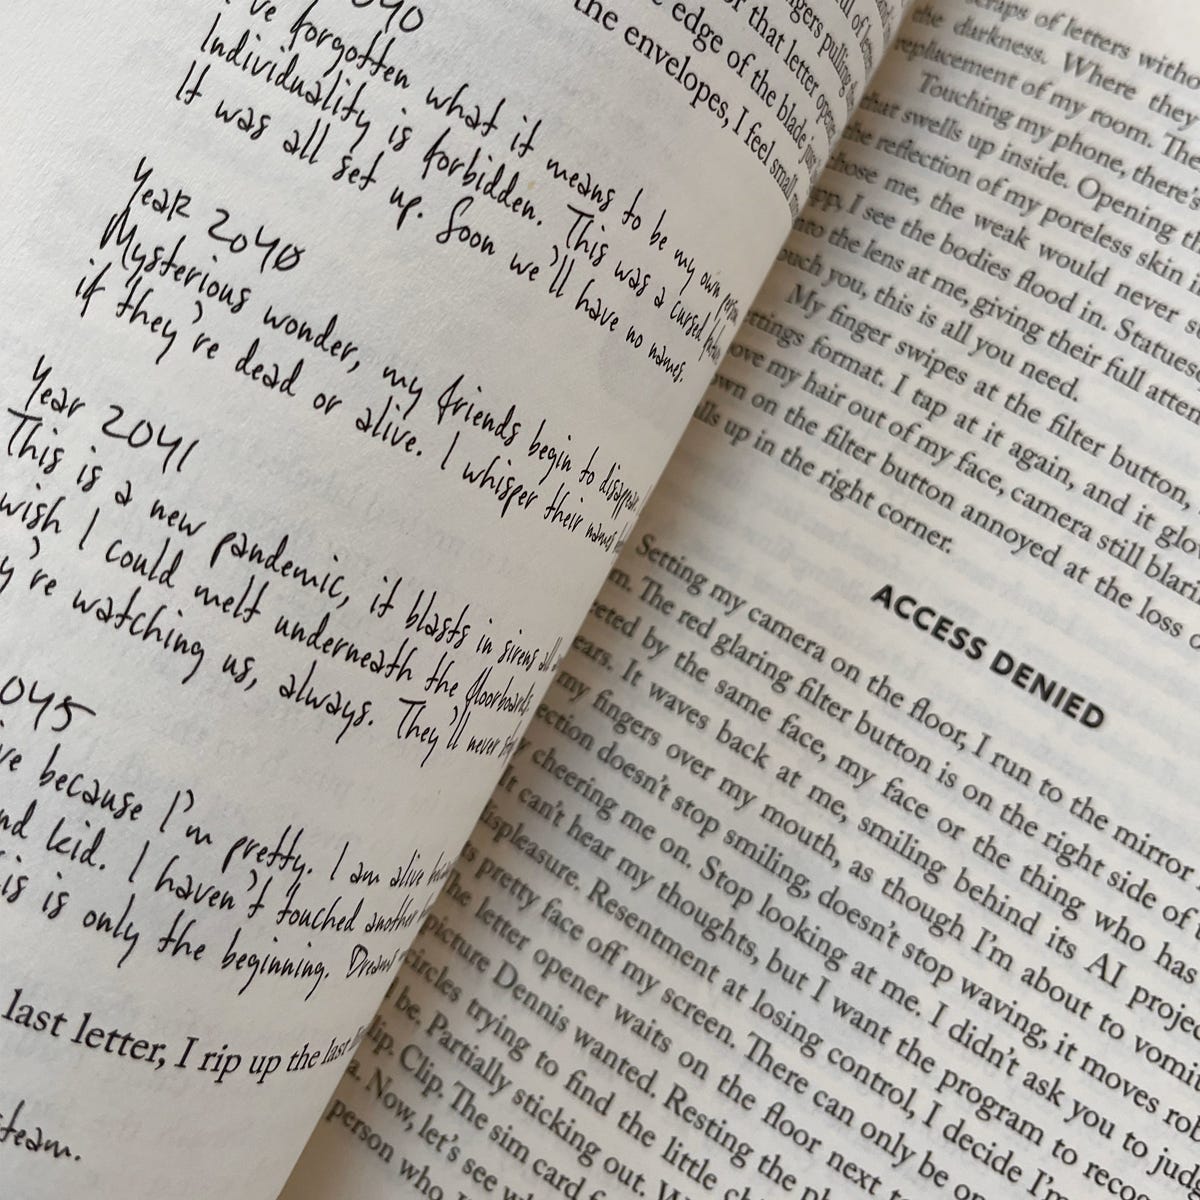 040
ve forgotten what it means to be my own person
Individuality is forbidden. This was a cursed
It was all set up. Soon we'll have no names.
Year 2040
Mysterious wonder, my friends begin to disappear.
if they're dead or alive. I whisper their names
Year 2041
This is a new pandemic, it blasts in sirens all
wish I could melt underneath the floorboards.
y're watching us, always. They'll never
045
ve because I'm pretty. I am alive
nd kid. I haven't touched another
is is only the beginning. Dreams
last letter, I rip up the last
steam.
ngers pulling the
or that letter opener
e edge of the blade just
the envelopes, I feel small
scraps of letters witho
the darkness. Where they
replacement of my room. The
Touching my phone, there's
that swells up inside. Opening th
the reflection of my poreless skin i
chose me, the weak would never s
app, I see the bodies flood in. Statuesq
nto the lens at me, giving their full atten
ouch you, this is all you need.
My finger swipes at the filter button,
ttings format. I tap at it again, and it glo
ove my hair out of my face, camera still blari
wn on the filter button annoyed at the loss o
lls up in the right corner.
ACCESS DENIED
Setting my camera on the floor, I run to the mirror
m. The red glaring filter button is on the right side of
reted by the same face, my face or the thing who has
ears. It waves back at me, smiling behind its AI proje
my fingers over my mouth, as though I'm about to vomit
ection doesn't stop smiling, doesn't stop waving, it moves rob
cheering me on. Stop looking at me. I didn't ask you to jud
It can't hear my thoughts, but I want the program to reco
ispleasure. Resentment at losing control, I decide I'm
ts pretty face off my screen. There can only be on
he letter opener waits on the floor next t
picture Dennis wanted. Resting the p
circles trying to find the little c
be. Partially sticking out. W
lip. Clip. The sim card f
a. Now, let's see w
person who